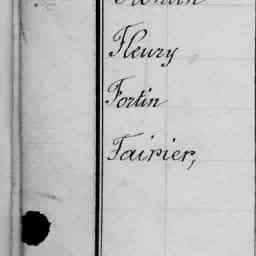 Fleury
Fortin
Fairier,